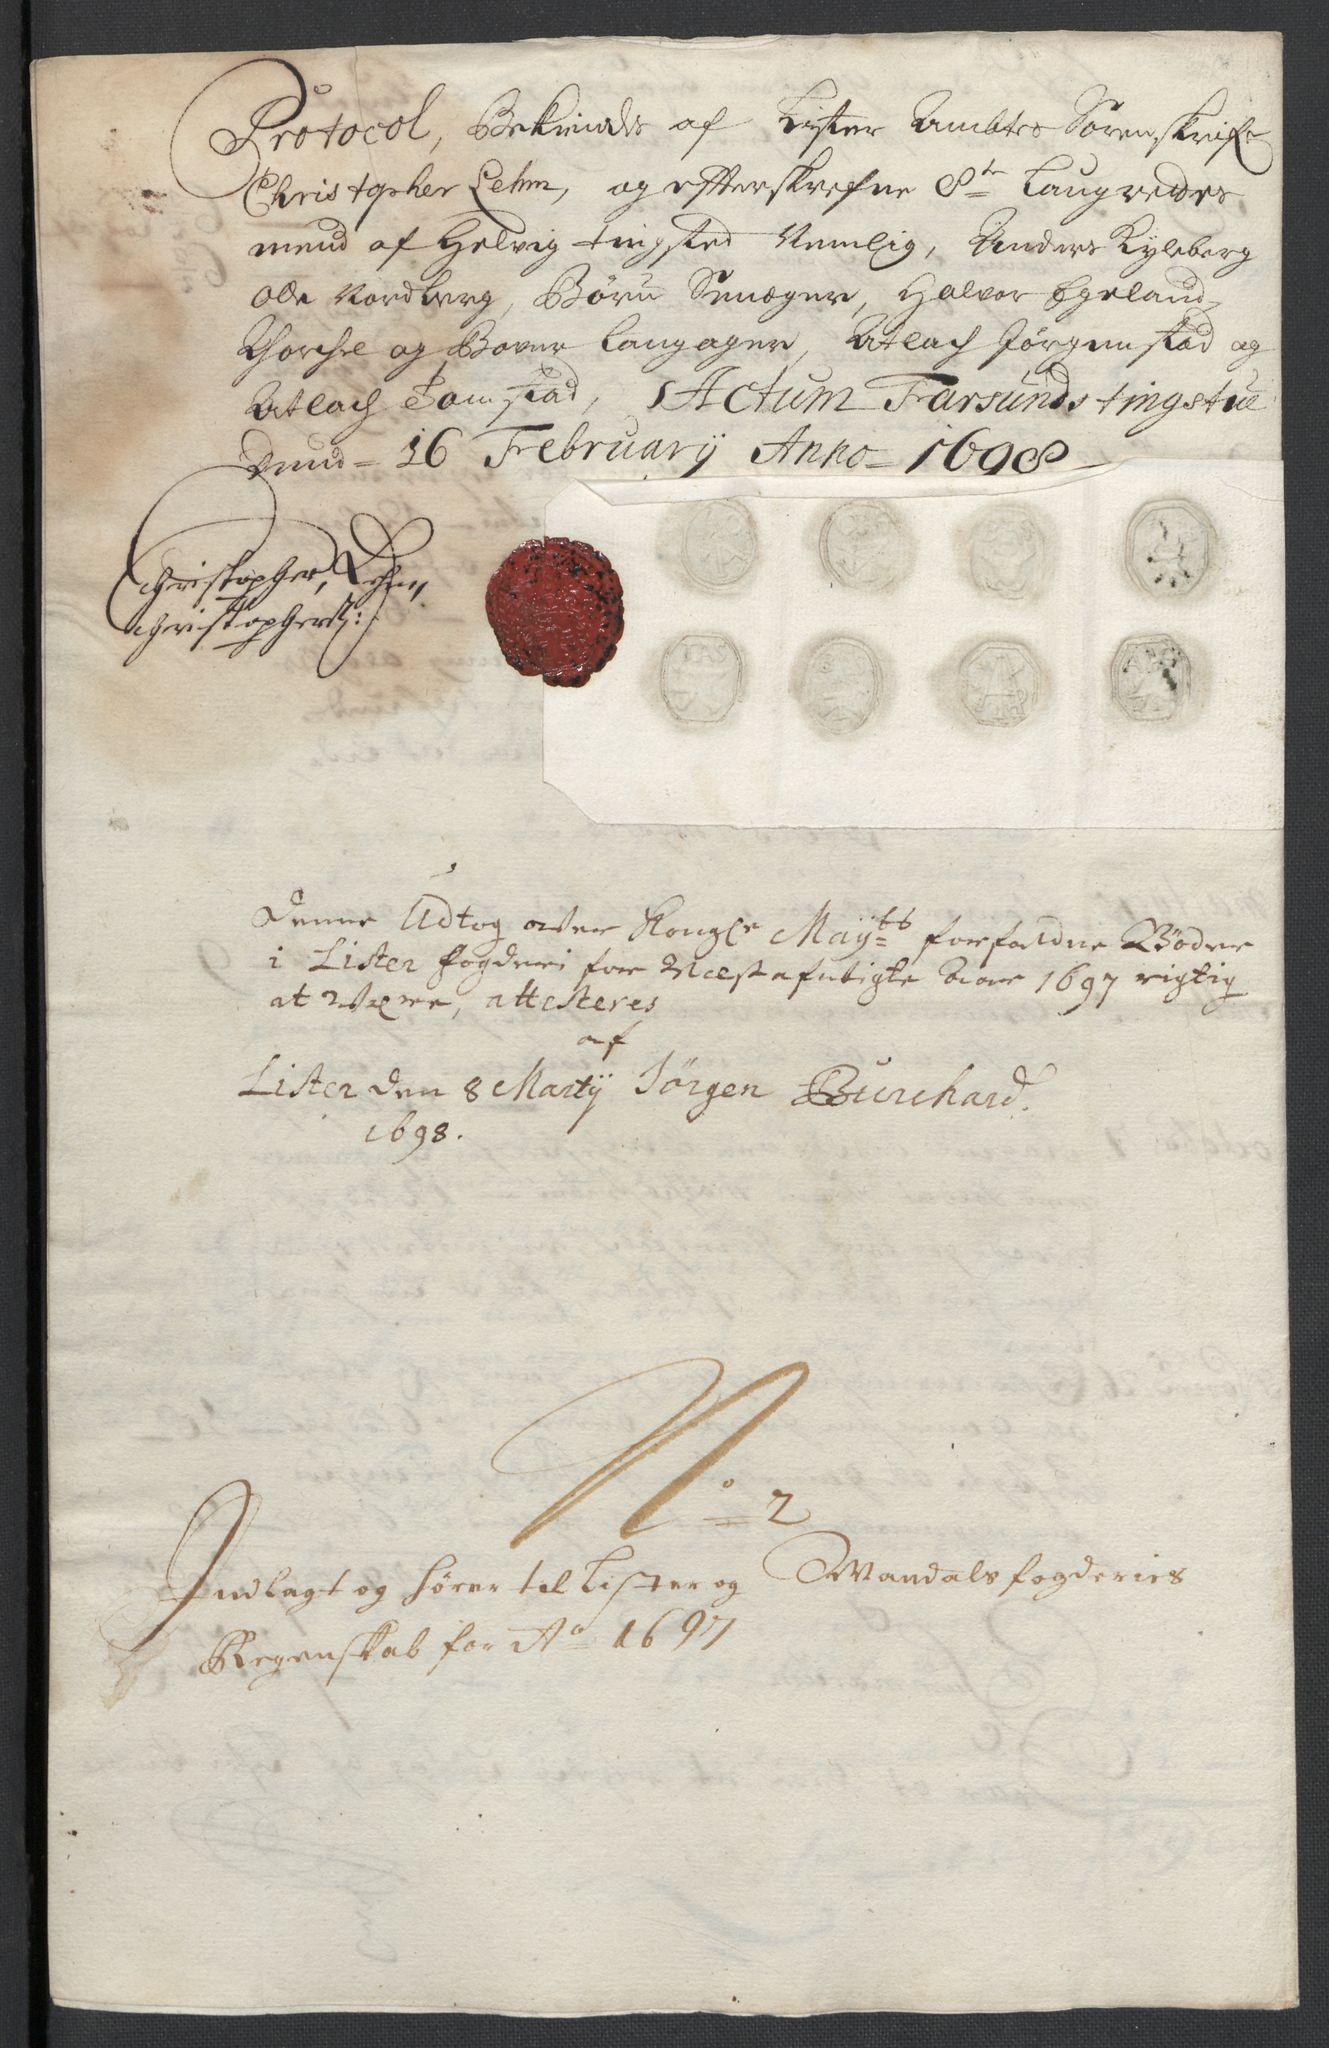 Protocol, Bekiendes af Lister Ambtes Sorenskrifr
Christopher Lehm, og efterskrefne 8te Laugrettes
mend af Helvig tingsted Nemlig, Anders Kyleberg
Ole Nordberg, Børu Snneger, Halvor Egeland,
Thorchel og Bover Langager, Atlach Jørgenstad og
Atlach Tomstad, Actum Farsunds tingstue
dend 16 February Anno 1698
Christopher Lehm,
Christophers:
IAS
Denne Udtog over Kongle Mayts forfaldne Bøder
i Lister fogderi for Næstafvigte Aar 1697 rigtig
at Være, attesteres
af
Lister den 8 Marty Jørgen Burchard.
1698.
No 2
Indlagt og hører til Lister og Mandals fogderies
Regenskab for Ao 1697